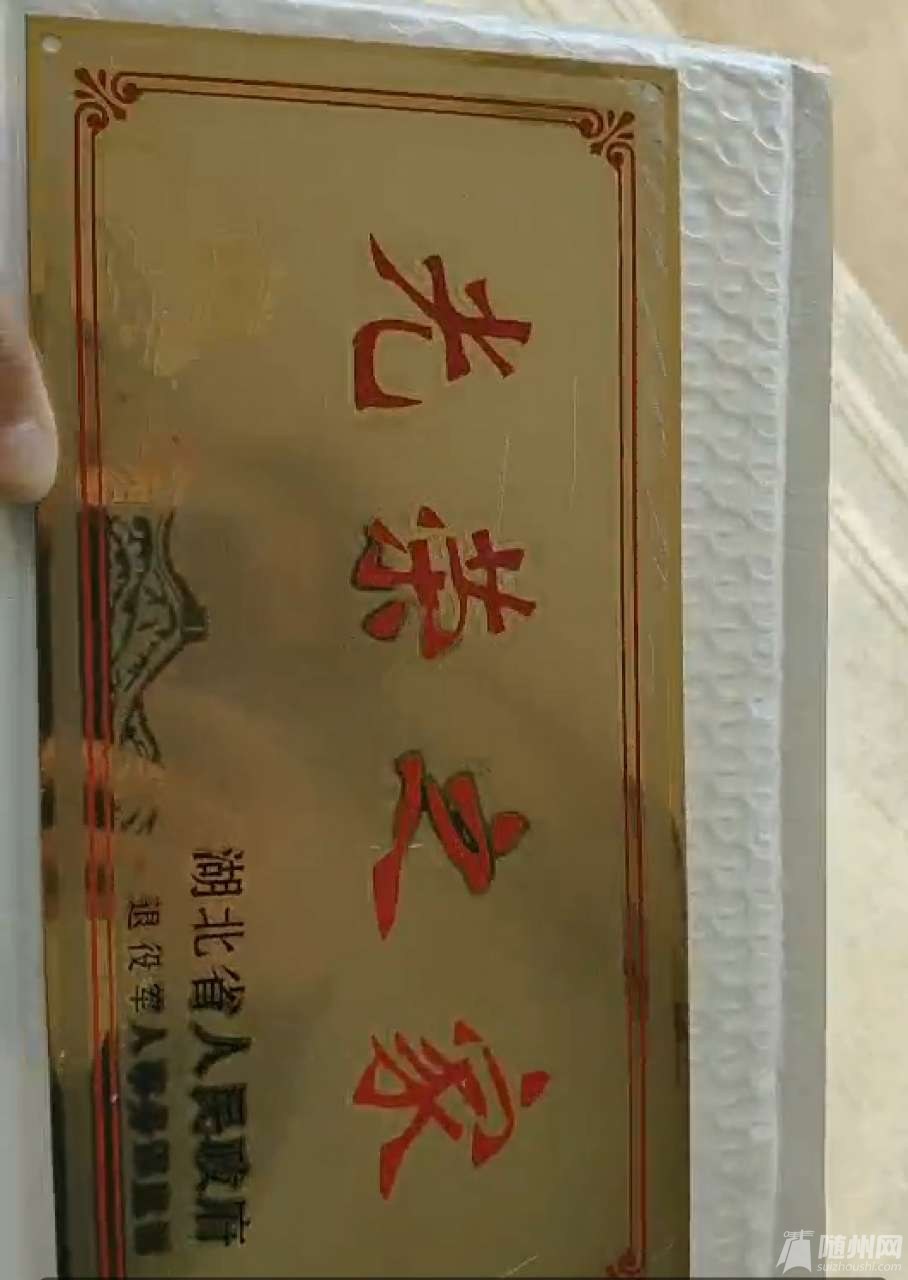 光荣之家
湖北省人民政府
退役军人事务部监制
随州网
suizhoushi.com